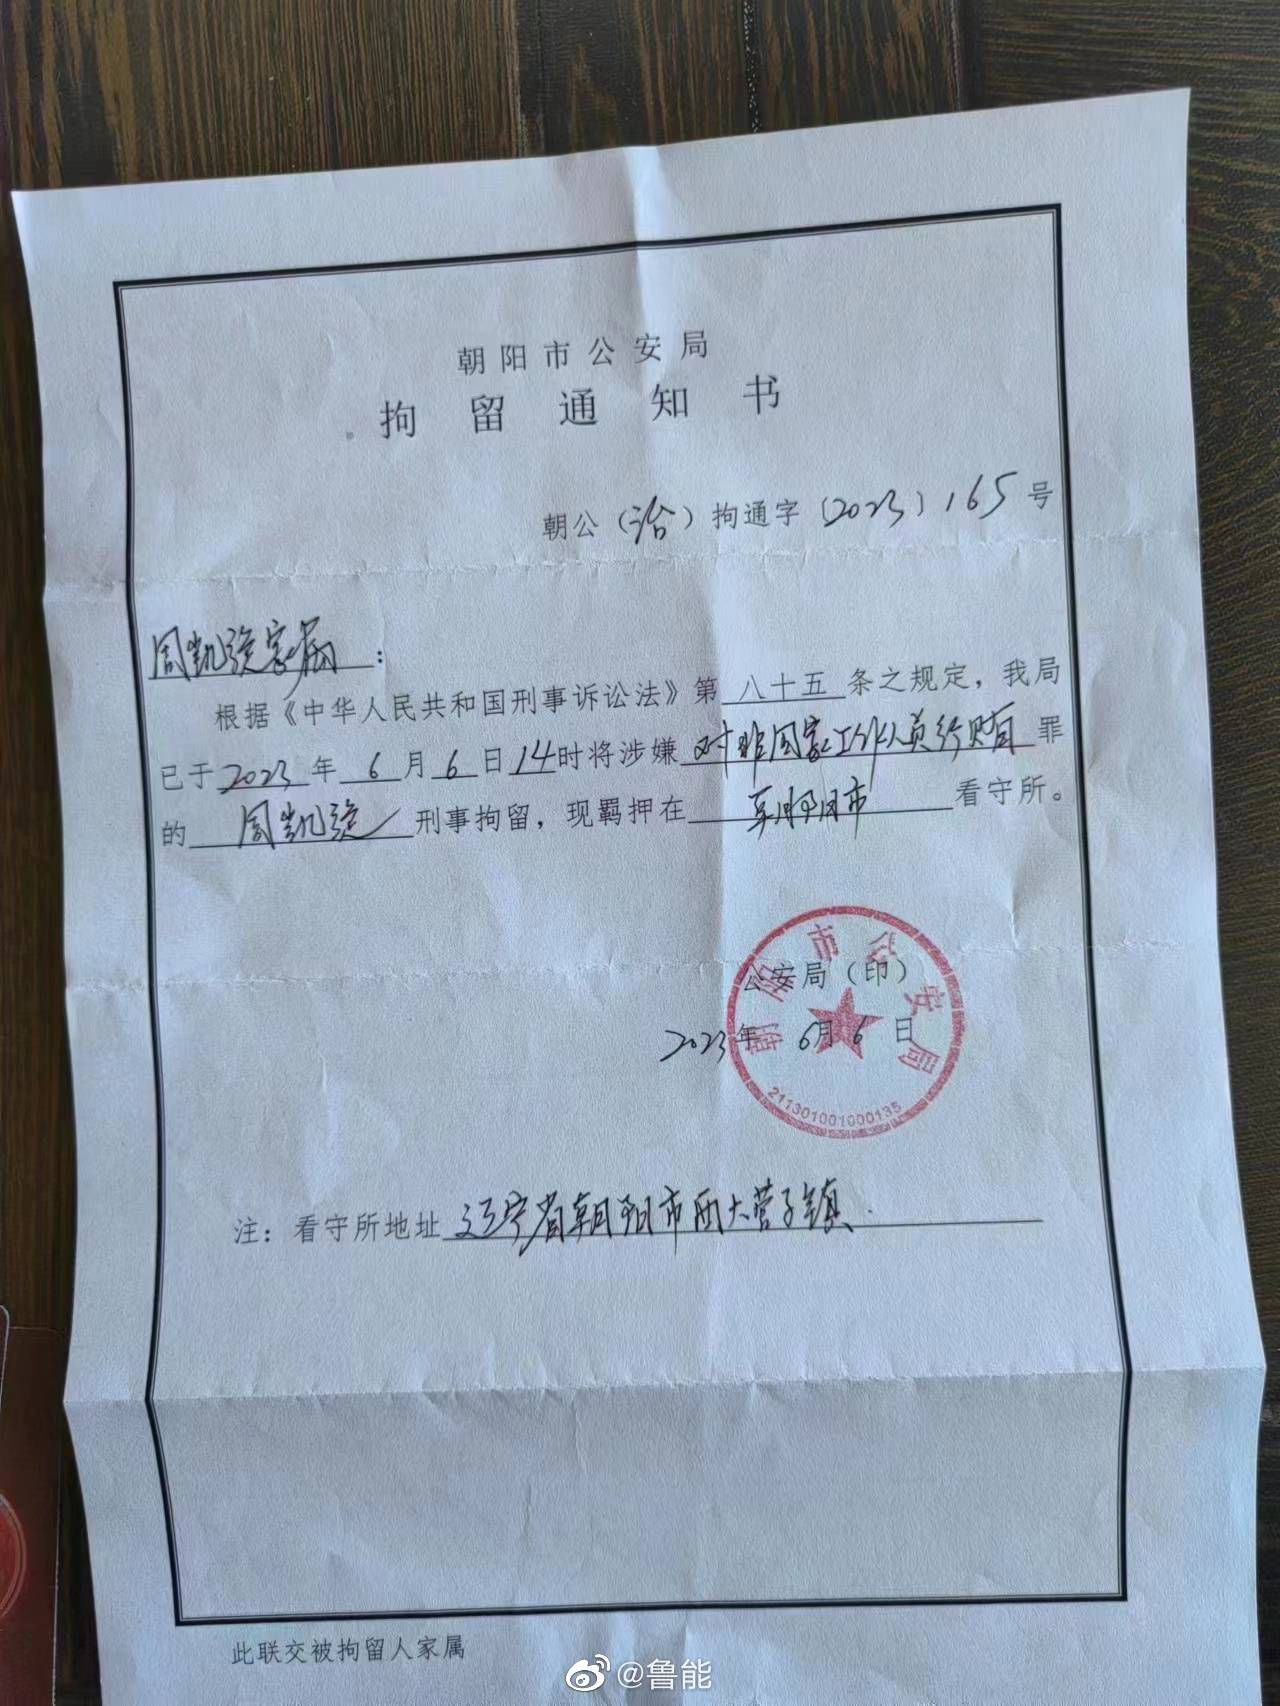 朝阳市公安局
拘留通知书
朝公(治)拘通字〔2023〕165号
周凯旋家属:
根据《中华人民共和国刑事诉讼法》第八十五条之规定,我局
已于2023年6月6日14时将涉嫌对非国家工作人员行贿罪
的周凯旋刑事拘留,现羁押在朝阳市看守所。
朝阳市公安局
公安局(印)
2023年6月6日
2113010010000135
注:看守所地址辽宁省朝阳市西大营子镇.
此联交被拘留人家属
@鲁能